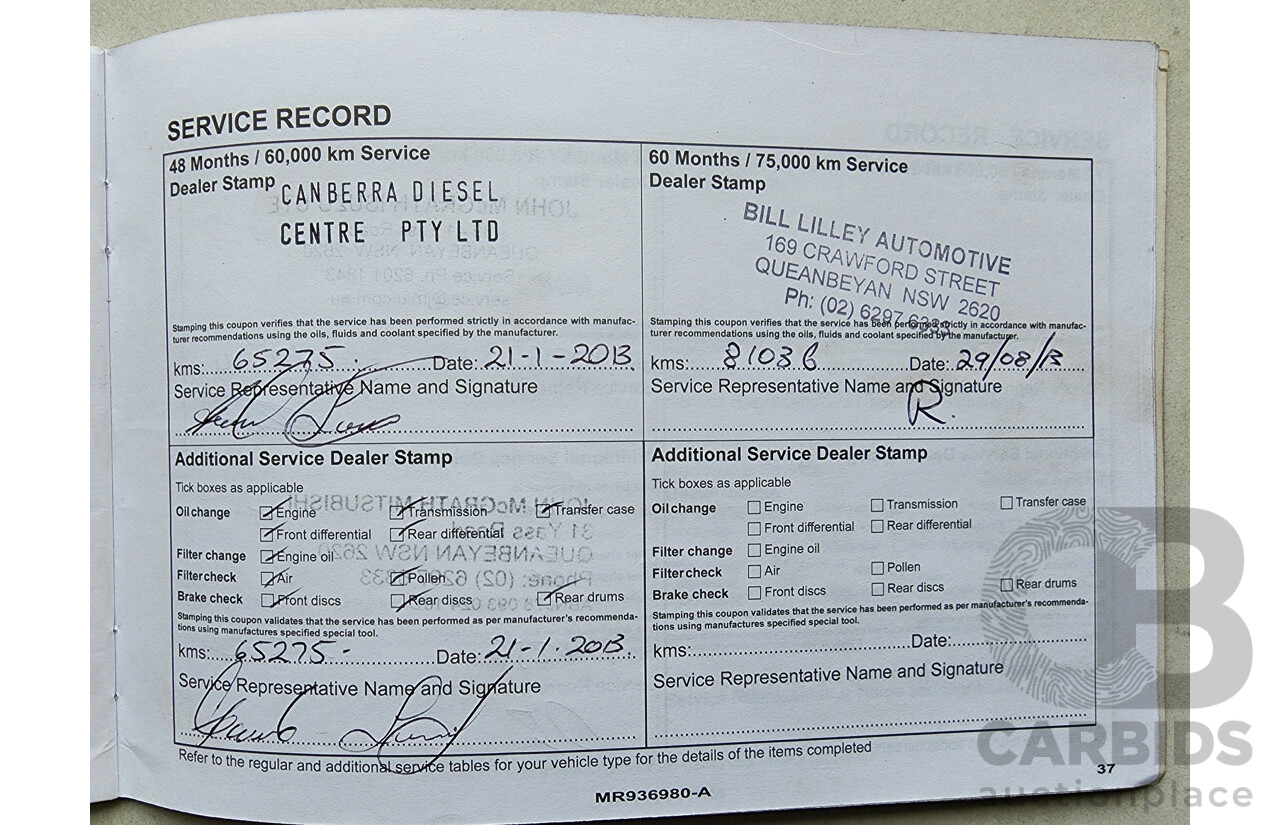 SERVICE RECORD
48 Months / 60,000 km Service
Dealer Stamp
CANBERRA DIESEL
CENTRE PTY LTD
Stamping this coupon verifies that the service has been performed strictly in accordance with manufac-
turer recommendations using the oils, fluids and coolant specified by the manufacturer.
kms: 65275. Date: 21-1-2013
Service Representative Name and Signature
60 Months / 75,000 km Service
Dealer Stamp
BILL LILLEY AUTOMOTIVE
169 CRAWFORD STREET
QUEANBEYAN NSW 2620
Ph: (02) 6297
Stamping this coupon verifies that the service has been performed strictly in accordance with manufac-
turer recommendations using the oils, fluids and coolant specified by the manufacturer.
kms: 81036 Date: 29/08/13
Service Representative Name and Signature
R.
Additional Service Dealer Stamp
Tick boxes as applicable
Oil change Engine Transmission Transfer case
Front differential Rear differential
Filter change Engine oil
Filter check Air Pollen
Brake check Front discs Rear discs Rear drums
Stamping this coupon validates that the service has been performed as per manufacturer's recommenda-
tions using manufactures specified special tool.
kms: 65275- Date: 21-1-2013
Service Representative Name and Signature
Additional Service Dealer Stamp
Tick boxes as applicable
Oil change Engine Transmission Transfer case
Front differential Rear differential
Filter change Engine oil
Filter check Air Pollen
Brake check Front discs Rear discs Rear drums
Stamping this coupon validates that the service has been performed as per manufacturer's recommenda-
tions using manufactures specified special tool.
kms: Date:
Service Representative Name and Signature
Refer to the regular and additional service tables for your vehicle type for the details of the items completed
37
MR936980-A
CB
CARBIDS
auctionplace